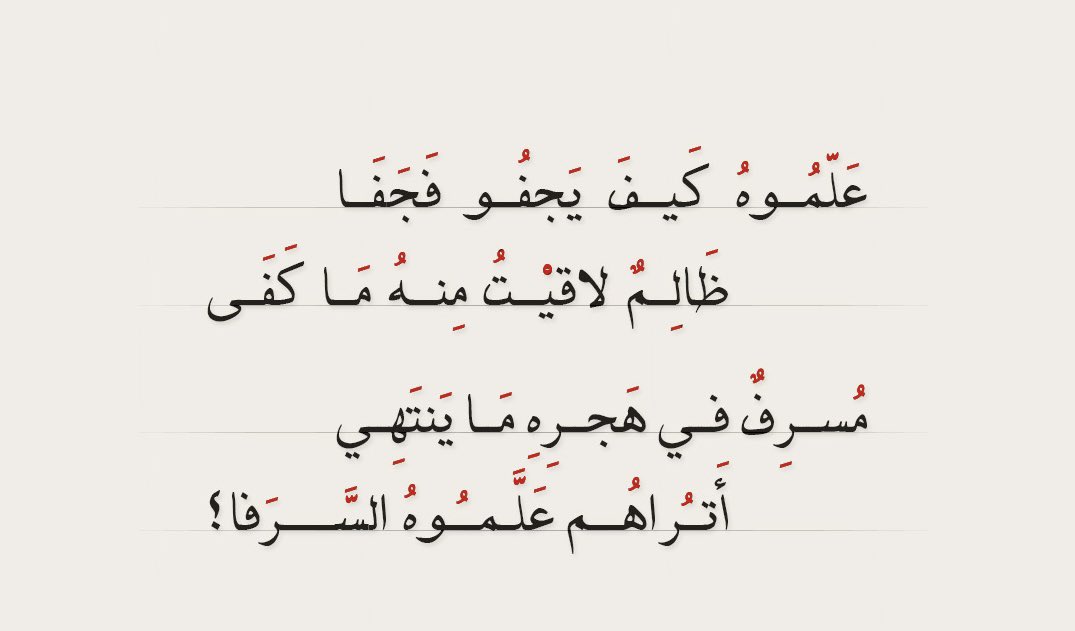 عَلّمُـوهُ كَيـفَ يَجفُـو فَجَفَـا
ظَالِـمٌ لاقيْـتُ مِنـهُ مَـا كَفَـى
مُسـرِفٌ فـي هَجـرِهِ مَـا يَنتَهِـي
أَتـُراهُـم عَلَّمـُوهُ السَّـرَفا؟